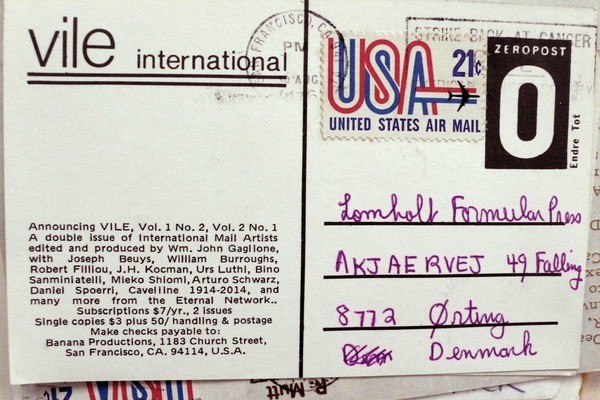 vile international
Announcing VILE, Vol. 1 No. 2, Vol. 2 No. 1
A double issue of International Mail Artists
edited and produced by Wm. John Gaglione,
with Joseph Beuys, William Burroughs,
Robert Filliou, J.H. Kocman, Urs Luthi, Bino
Sanminiatelli, Mieko Shiomi, Arturo Schwarz,
Daniel Spoerri, Cavelline 1914-2014, and
many more from the Eternal Network..
Subscriptions $7/yr., 2 issues
Single copies $3 plus 50/ handling & postage
Make checks payable to:
Banana Productions, 1183 Church Street,
San Francisco, CA. 94114, U.S.A.
FRANCISCO, CA
PM
AUG
STRIKE BACK AT CANCER
USA 21c
UNITED STATES AIR MAIL
ZEROPOST
0
Endre Tot
Lomholt Formular Press
AKJAERVEJ 49 Falling
8772 Ørting
Denmark
R. Mutt